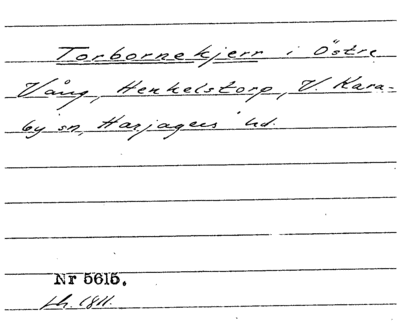 Torbornekjerr i Östre
Vång, Henkelstorp, V. Kara-
by sn, Harjagers hd.
Nr 5615.
sh. 1811.